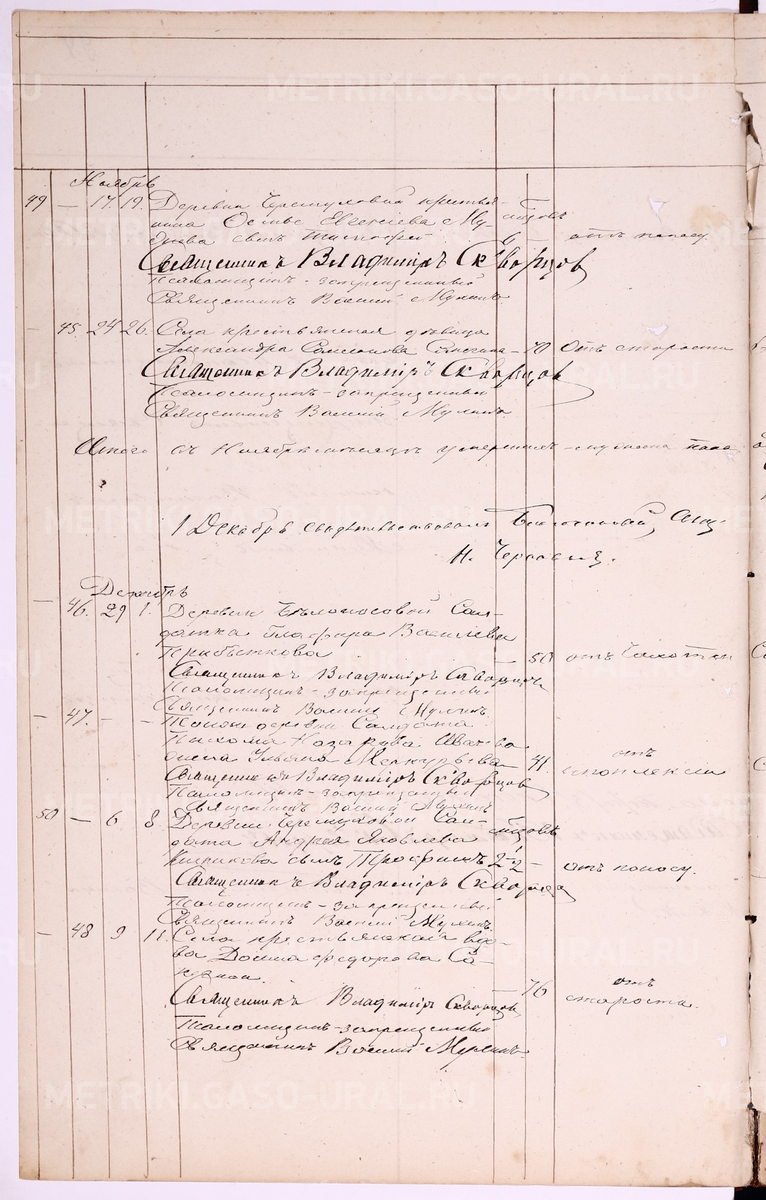 METRIKI.GASO-URAL.RU
Ноябрь
49 — 17. 19. Деревни Черемуховой крестья-
нина Осипа Евсеніева Му-
сынъ Тимофей 6 — отъ поносу.
Священникъ Владиміръ Скворцовъ
Псаломщикъ-запрещенный
Священникъ Василій Мухинъ
— 45. 24 26. Села крестьянская дѣвица
Александра 70 отъ старости
Священникъ Владиміръ Скворцовъ
Псаломщикъ-запрещенный
Священникъ Василій Мухинъ.
Итого въ Ноябрѣ мѣсяцѣ умершихъ
1 Декабря свидѣтельствовалъ Благочинный, Свящ.
Н.
Декабрь
— 46. 29 1. Деревни Бѣлоносовой Сол-
датка Глафира Васильева
Прибыткова — 50 отъ чахотки
Священникъ Владиміръ Скворцовъ
Псаломщикъ-запрещенный
Священникъ Василій Мухинъ.
— 47. — — Той же деревни Солдата
Пахома Назарова Ивачева
жена Ульяна Меркурьева 41. отъ
Священникъ Владиміръ Скворцовъ апоплексіи
Псаломщикъ-запрещенный
Священникъ Василій Мухинъ
50 — 6 8 Деревни Черемуховой Сол-
дата Андрея Яковлева
сынъ Трофимъ 2 1/2 — отъ поносу.
Священникъ Владиміръ Скворцовъ
Псаломщикъ-запрещенный
Священникъ Василій Мухинъ.
— 48 9 11. Села крестьянская вдо-
ва Домна Федорова
76 отъ
Священникъ Владиміръ Скворцовъ старости.
Псаломщикъ-запрещенный
Священникъ Василій Мухинъ.
METRIKI.GASO-URAL.RU